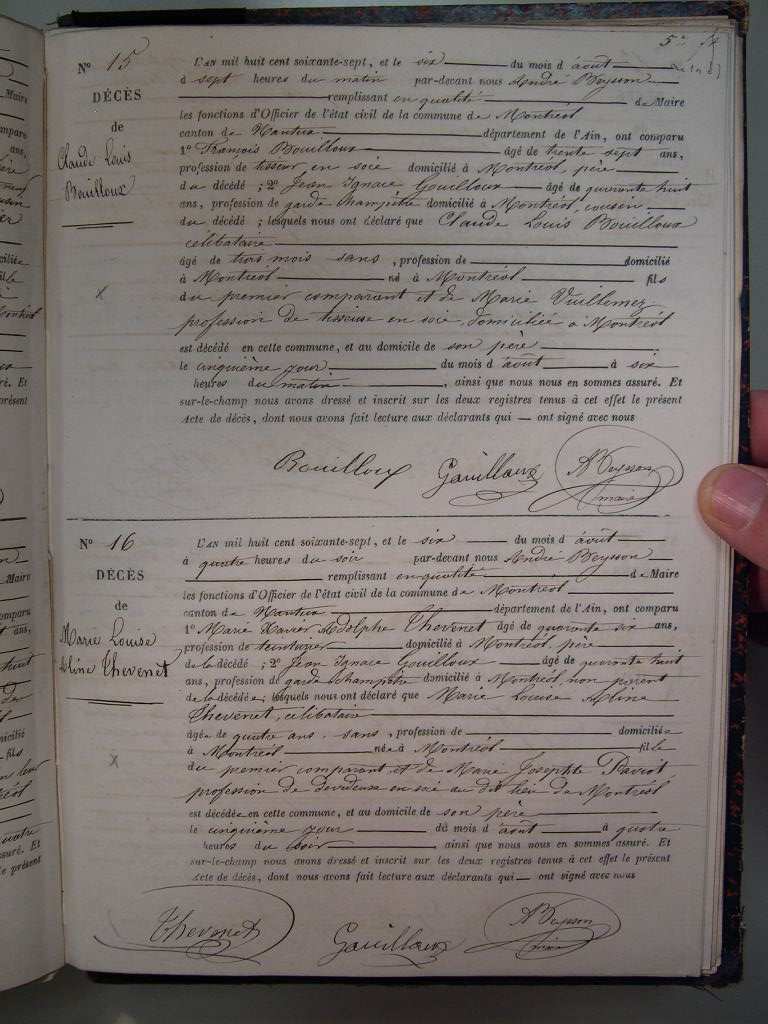 5e
Nº 15
DÉCÈS
de
Claude Louis
Bouilloux
L'AN mil huit cent soixante-sept, et le six du mois d août
à sept heures du matin par-devant nous André Beysson
remplissant en qualité de Maire
les fonctions d'Officier de l'état civil de la commune de Montréal
canton de Nantua département de l'Ain, ont comparu
1º François Bouilloux âgé de trente sept ans,
profession de tisseur en soie domicilié à Montréal, père
du décédé ; 2º Jean Ignace Gouilloux âgé de quarante huit
ans, profession de garde champêtre domicilié à Montréal, cousin
du décédé ; lesquels nous ont déclaré que Claude Louis Bouilloux
célibataire
âgé de trois mois sans , profession de domicilié
à Montréal né à Montréal fils
du premier comparant et de Marie Vuillemez
profession de tisseuse en soie, domiciliée à Montréal
est décédé en cette commune, et au domicile de son père
le cinquième jour du mois d'août à six
heures du matin , ainsi que nous nous en sommes assuré. Et
sur-le-champ nous avons dressé et inscrit sur les deux registres tenus à cet effet le présent
Acte de décès, dont nous avons fait lecture aux déclarants qui — ont signé avec nous
Bouilloux Gouilloux A Beysson
maire
Nº 16
DÉCÈS
de
Marie Louise
Aline Thevenet
L'AN mil huit cent soixante-sept, et le six du mois d août
à quatre heures du soir par-devant nous André Beysson
remplissant en qualité de Maire
les fonctions d'Officier de l'état civil de la commune de Montréal
canton de Nantua département de l'Ain, ont comparu
1º Marie Xavier Adolphe Thevenet âgé de quarante six ans,
profession de teinturier domicilié à Montréal, père
de la décédé ; 2º Jean Ignace Gouilloux âgé de quarante huit
ans, profession de garde champêtre domicilié à Montréal, non parent
de la décédée ; lesquels nous ont déclaré que Marie Louise Aline
Thevenet, célibataire
âgée de quatre ans, sans , profession de domiciliée
à Montréal née à Montréal fille
du premier comparant et de Marie Josephte
profession de dévideuse en soie au dit lieu de Montréal
est décédée en cette commune, et au domicile de son père
le cinquième jour du mois d'août à quatre
heures du soir , ainsi que nous nous en sommes assuré. Et
sur-le-champ nous avons dressé et inscrit sur les deux registres tenus à cet effet le présent
Acte de décès, dont nous avons fait lecture aux déclarants qui — ont signé avec nous
Thevenet Gouilloux A Beysson
maire